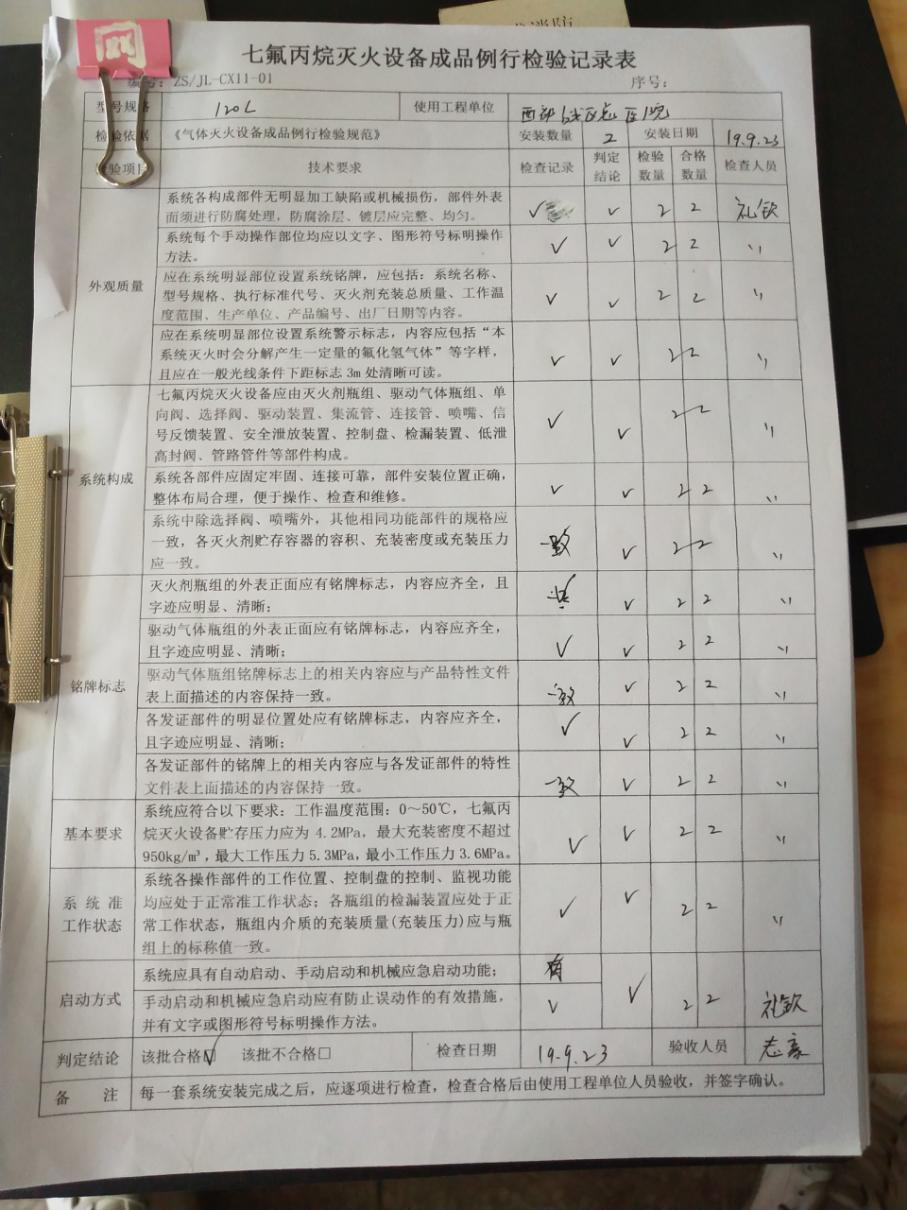 冰断
网
七氟丙烷灭火设备成品例行检验记录表
编号：ZS/JL-CX11-01 序号：
型号规格 120L 使用工程单位 西部战区总医院
检验依据 《气体灭火设备成品例行检验规范》 安装数量 2 安装日期 19.9.23
检验项目 技术要求 检查记录 判定结论 检验数量 合格数量 检查人员
外观质量
系统各构成部件无明显加工缺陷或机械损伤，部件外表
面须进行防腐处理，防腐涂层、镀层应完整、均匀。 √ √ 2 2 礼钦
系统每个手动操作部位均应以文字、图形符号标明操作
方法。 √ √ 2 2 〃
应在系统明显部位设置系统铭牌，应包括：系统名称、
型号规格、执行标准代号、灭火剂充装总质量、工作温
度范围、生产单位、产品编号、出厂日期等内容。 √ √ 2 2 〃
应在系统明显部位设置系统警示标志，内容应包括“本
系统灭火时会分解产生一定量的氟化氢气体”等字样，
且应在一般光线条件下距标志 3m 处清晰可读。 √ √ 2 2 〃
系统构成
七氟丙烷灭火设备应由灭火剂瓶组、驱动气体瓶组、单
向阀、选择阀、驱动装置、集流管、连接管、喷嘴、信
号反馈装置、安全泄放装置、控制盘、检漏装置、低泄
高封阀、管路管件等部件构成。 √ √ 2 2 〃
系统各部件应固定牢固、连接可靠，部件安装位置正确，
整体布局合理，便于操作、检查和维修。 √ √ 2 2 〃
系统中除选择阀、喷嘴外，其他相同功能部件的规格应
一致，各灭火剂贮存容器的容积、充装密度或充装压力
应一致。 一致 √ 2 2 〃
铭牌标志
灭火剂瓶组的外表正面应有铭牌标志，内容应齐全，且
字迹应明显、清晰； √ 2 2 〃
驱动气体瓶组的外表正面应有铭牌标志，内容应齐全，
且字迹应明显、清晰； √ √ 2 2 〃
驱动气体瓶组铭牌标志上的相关内容应与产品特性文件
表上面描述的内容保持一致。 一致 √ 2 2 〃
各发证部件的明显位置处应有铭牌标志，内容应齐全，
且字迹应明显、清晰； √ √ 2 2 〃
各发证部件的铭牌上的相关内容应与各发证部件的特性
文件表上面描述的内容保持一致。 一致 √ 2 2 〃
基本要求
系统应符合以下要求：工作温度范围：0～50℃，七氟丙
烷灭火设备贮存压力应为 4.2MPa，最大充装密度不超过
950kg/m³，最大工作压力 5.3MPa，最小工作压力 3.6MPa。 √ √ 2 2 〃
系统准
工作状态
系统各操作部件的工作位置、控制盘的控制、监视功能
均应处于正常准工作状态；各瓶组的检漏装置应处于正
常工作状态，瓶组内介质的充装质量(充装压力)应与瓶
组上的标称值一致。 √ √ 2 2 〃
启动方式
系统应具有自动启动、手动启动和机械应急启动功能； 有
手动启动和机械应急启动应有防止误动作的有效措施，
并有文字或图形符号标明操作方法。 √ √ 2 2 礼钦
判定结论 该批合格☑ 该批不合格□ 检查日期 19.9.23 验收人员
备 注 每一套系统安装完成之后，应逐项进行检查，检查合格后由使用工程单位人员验收，并签字确认。